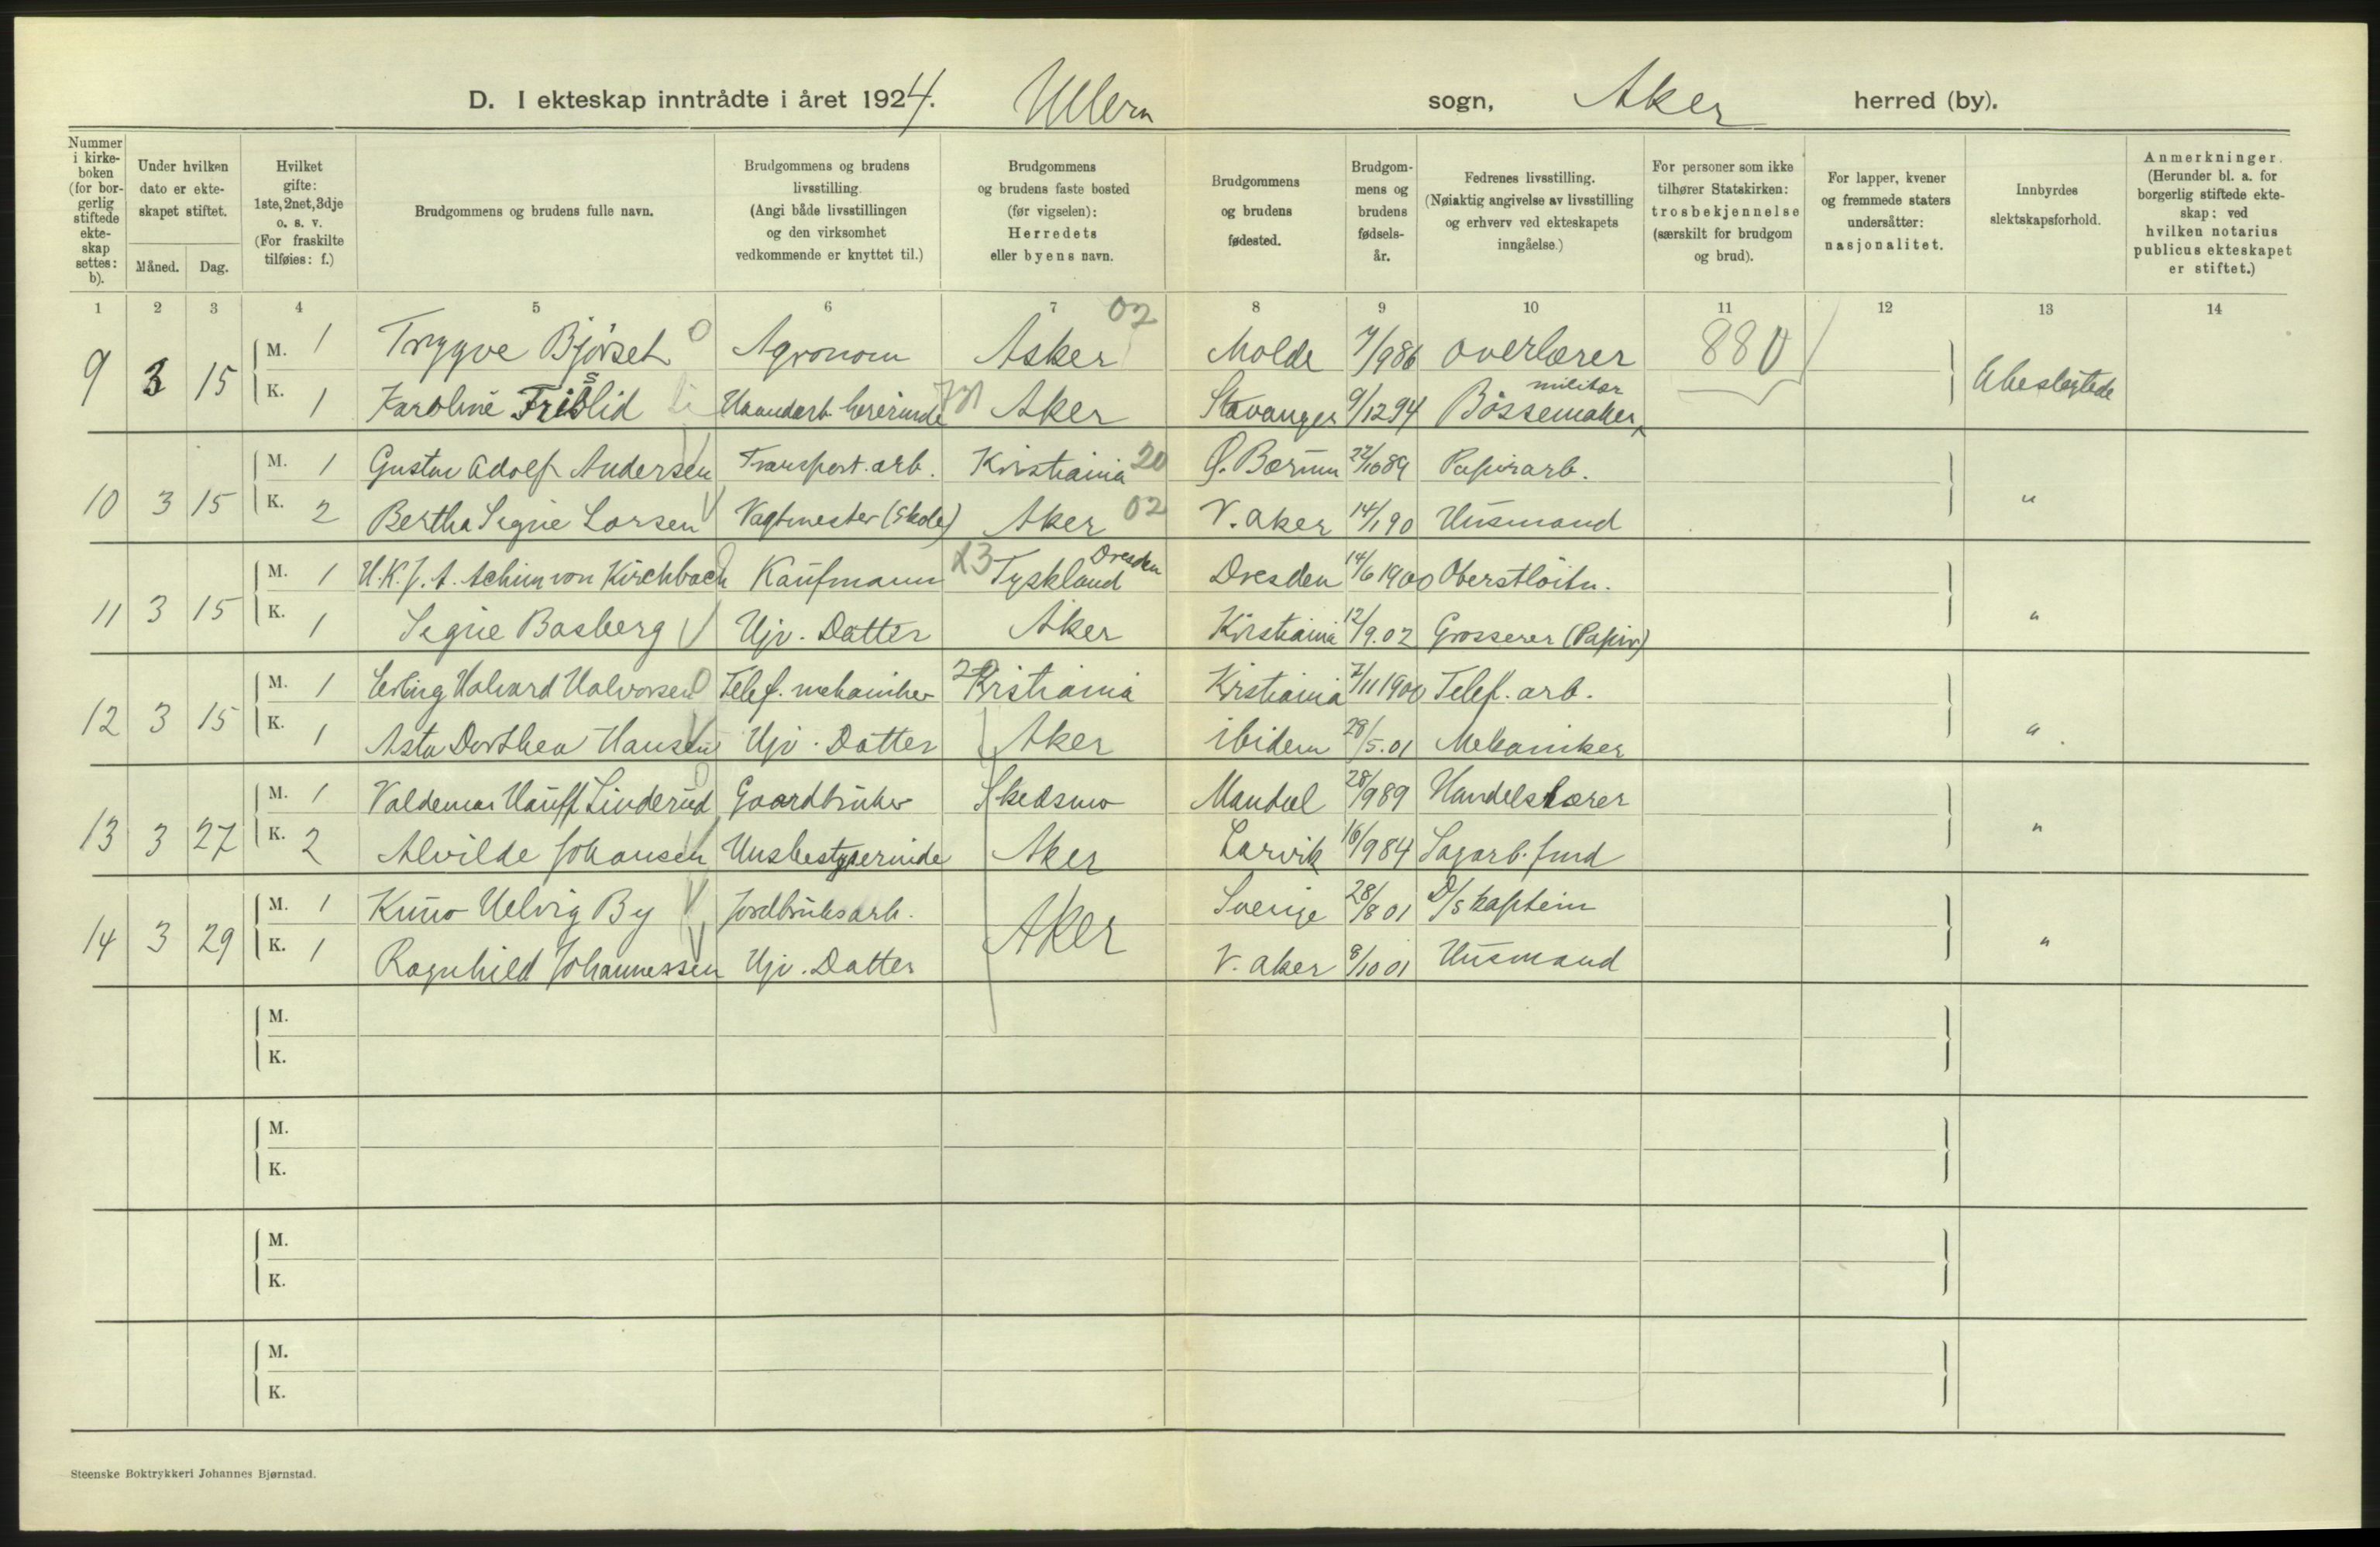 D. I ekteskap inntrådte i året 1924. Ullern sogn, Aker herred (by).
Nummer i kirkeboken (for borgerlig stiftede ekteskap settes: b).
Under hvilken dato er ekteskapet stiftet.
Måned. Dag.
Hvilket gifte: 1ste, 2net, 3dje o. s. v. (For fraskilte tilføies: f.)
Brudgommens og brudens fulle navn.
Brudgommens og brudens livsstilling. (Angi både livsstillingen og den virksomhet vedkommende er knyttet til.)
Brudgommens og brudens faste bosted (før vigselen): Herredets eller byens navn.
Brudgommens og brudens fødested.
Brudgommens og brudens fødselsår.
Fedrenes livsstilling. (Nøiaktig angivelse av livsstilling og erhverv ved ekteskapets inngåelse.)
For personer som ikke tilhører Statskirken: trosbekjennelse (særskilt for brudgom og brud).
For lapper, kvener og fremmede staters undersåtter: nasjonalitet.
Innbyrdes slektskapsforhold.
Anmerkninger. (Herunder bl. a. for borgerlig stiftede ekteskap: ved hvilken notarius publicus ekteskapet er stiftet.)
1 2 3 4 5 6 7 8 9 10 11 12 13 14
9 3 15 M. 1 Trygve Bjørset Agronom Asker 02 Molde 7/9 86 Overlærer 880
K. 1 Karoline Friislid Haandarb. lærerinde Aker Stavanger 9/12 94 Bössemaker militær Ubeslegtede
10 3 15 M. 1 Gustav Adolf Andersen Transport. arb. Kristiania 20 Ø. Bærum 22/10 89 Papirarb.
K. 2 Bertha Signe Larsen Vagtmester (Skole) Aker 02 V. Aker 14/1 90 Husmand "
11 3 15 M. 1 H.K.J.A. Achim von Kirchbach Kaufmann Tyskland Dresden Dresden 14/6 1900 Oberstlöitn.
K. 1 Signe Basberg Hjv. Datter Aker Kristiania 12/9.02 Grosserer (Papir) "
12 3 15 M. 1 Erling Halvard Halvorsen Telef. mekaniker Kristiania Kristiania 7/11 1900 Telef. arb.
K. 1 Asta Dorthea Hansen Hjv. Datter Aker ibidem 29/5.01 Mekaniker "
13 3 27 M. 1 Valdemar Hauff Linderud Gaardbruker Skedsmo Mandal 28/9 89 Handelslærer
K. 2 Alvilde Johansen Husbestyrerinde Aker Larvik 16/9 84 Sagarb. "
14 3 29 M. 1 Kuno Helvig By Jordbruksarb. Aker Sverige 28/8 01 D/S kaptein
K. 1 Ragnhild Johannessen Hjv. Datter V. Aker 8/10 01 Husmand "
M.
K.
M.
K.
M.
K.
M.
K.
Steenske Boktrykkeri Johannes Bjørnstad.